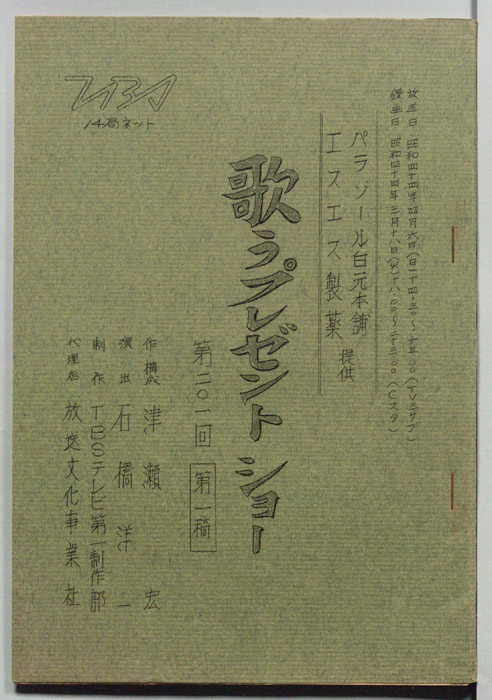 放送日 昭和四十四年四月六日(日)一十四・三〇〜十五・〇〇(TVミサブ)
録画日 昭和四十四年三月十八日(火)十八・〇〇〜二十三・〇〇(Cスタ)
パラゾール白元本舗
エスエス製薬 提供
歌うプレゼントショー
第二〇一回 第一稿
作・構成 津瀬宏
演出 石橋洋一
制作 TBSテレビ第一制作部
代理店 放送文化事業社
TBS
14局ネット